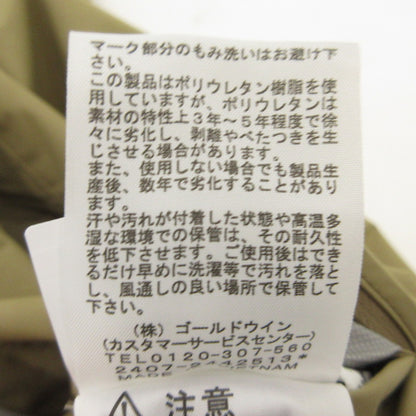 マーク部分のもみ洗いはお避け下
さい。
この製品はポリウレタン樹脂を使
用していますが、ポリウレタンは
素材の特性上3年〜5年程度で徐
々に劣化し、剥離やべたつきを生
じさせる場合があります。
また、使用しない場合でも製品生
産後、数年で劣化することがあり
ます。
汗や汚れが付着した状態や高温多
湿な環境での保管は、その耐久性
を低下させます。ご使用後はでき
るだけ早めに洗濯等で汚れを落と
し、風通しの良い場所で保管して
下さい。
(株) ゴールドウイン
(カスタマーサービスセンター)
TEL0120-307-560
2407-9442513*
MADE VIETNAM
注意